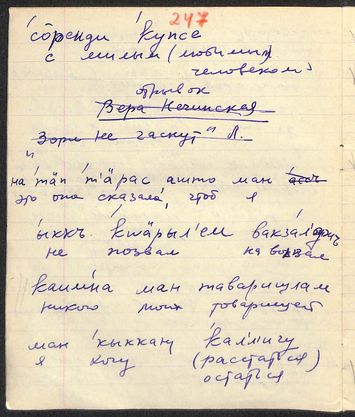 247
сöренди купсе
с милым (любимым
человеком)
отрывок
Вера Нечинская
Зори не гаснут" Л.
на тäп т'äрас ашто ман
это она сказала, чтоб я
ыккъ кwäрыл'ем вакзал
не позвал на вокзал
каим́на ман таварищлам
никого моих товарищей
ман кыккаҥ кал'л'игу
я хочу (расстаться)
остаться